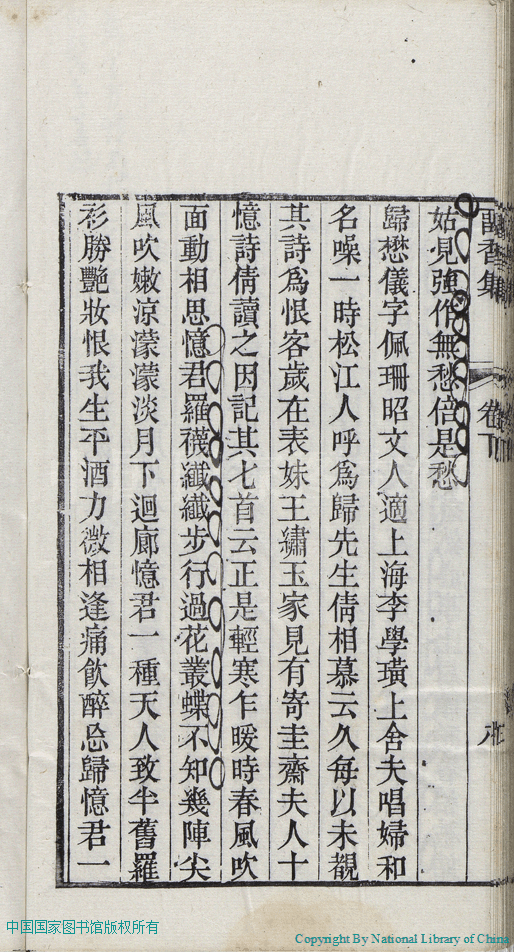 香集
卷下
姑見強作無愁倍是愁
歸懋儀字佩珊昭文人適上海李學璜上舍夫唱婦和
名噪一時松江人呼爲歸先生倩相慕云久每以未覩
其詩爲恨客歲在表妹王繡玉家見有寄圭齋夫人十
憶詩倩讀之因記其七首云正是輕寒乍暖時春風吹
面動相思憶君羅襪纖纖步行過花叢蝶不知幾陣尖
風吹嫩涼濛濛淡月下迴廊憶君一種天人致半舊羅
衫勝艷妝恨我生平酒力微相逢痛飲醉忘歸憶君一
中国国家图书馆版权所有
Copyright By National Library of China